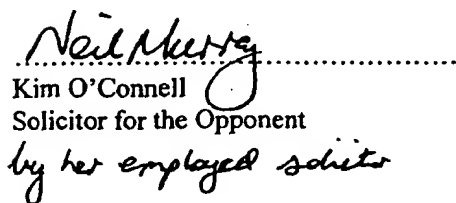 Neil Murray
........................................
Kim O'Connell
Solicitor for the Opponent
by her employed solicitor